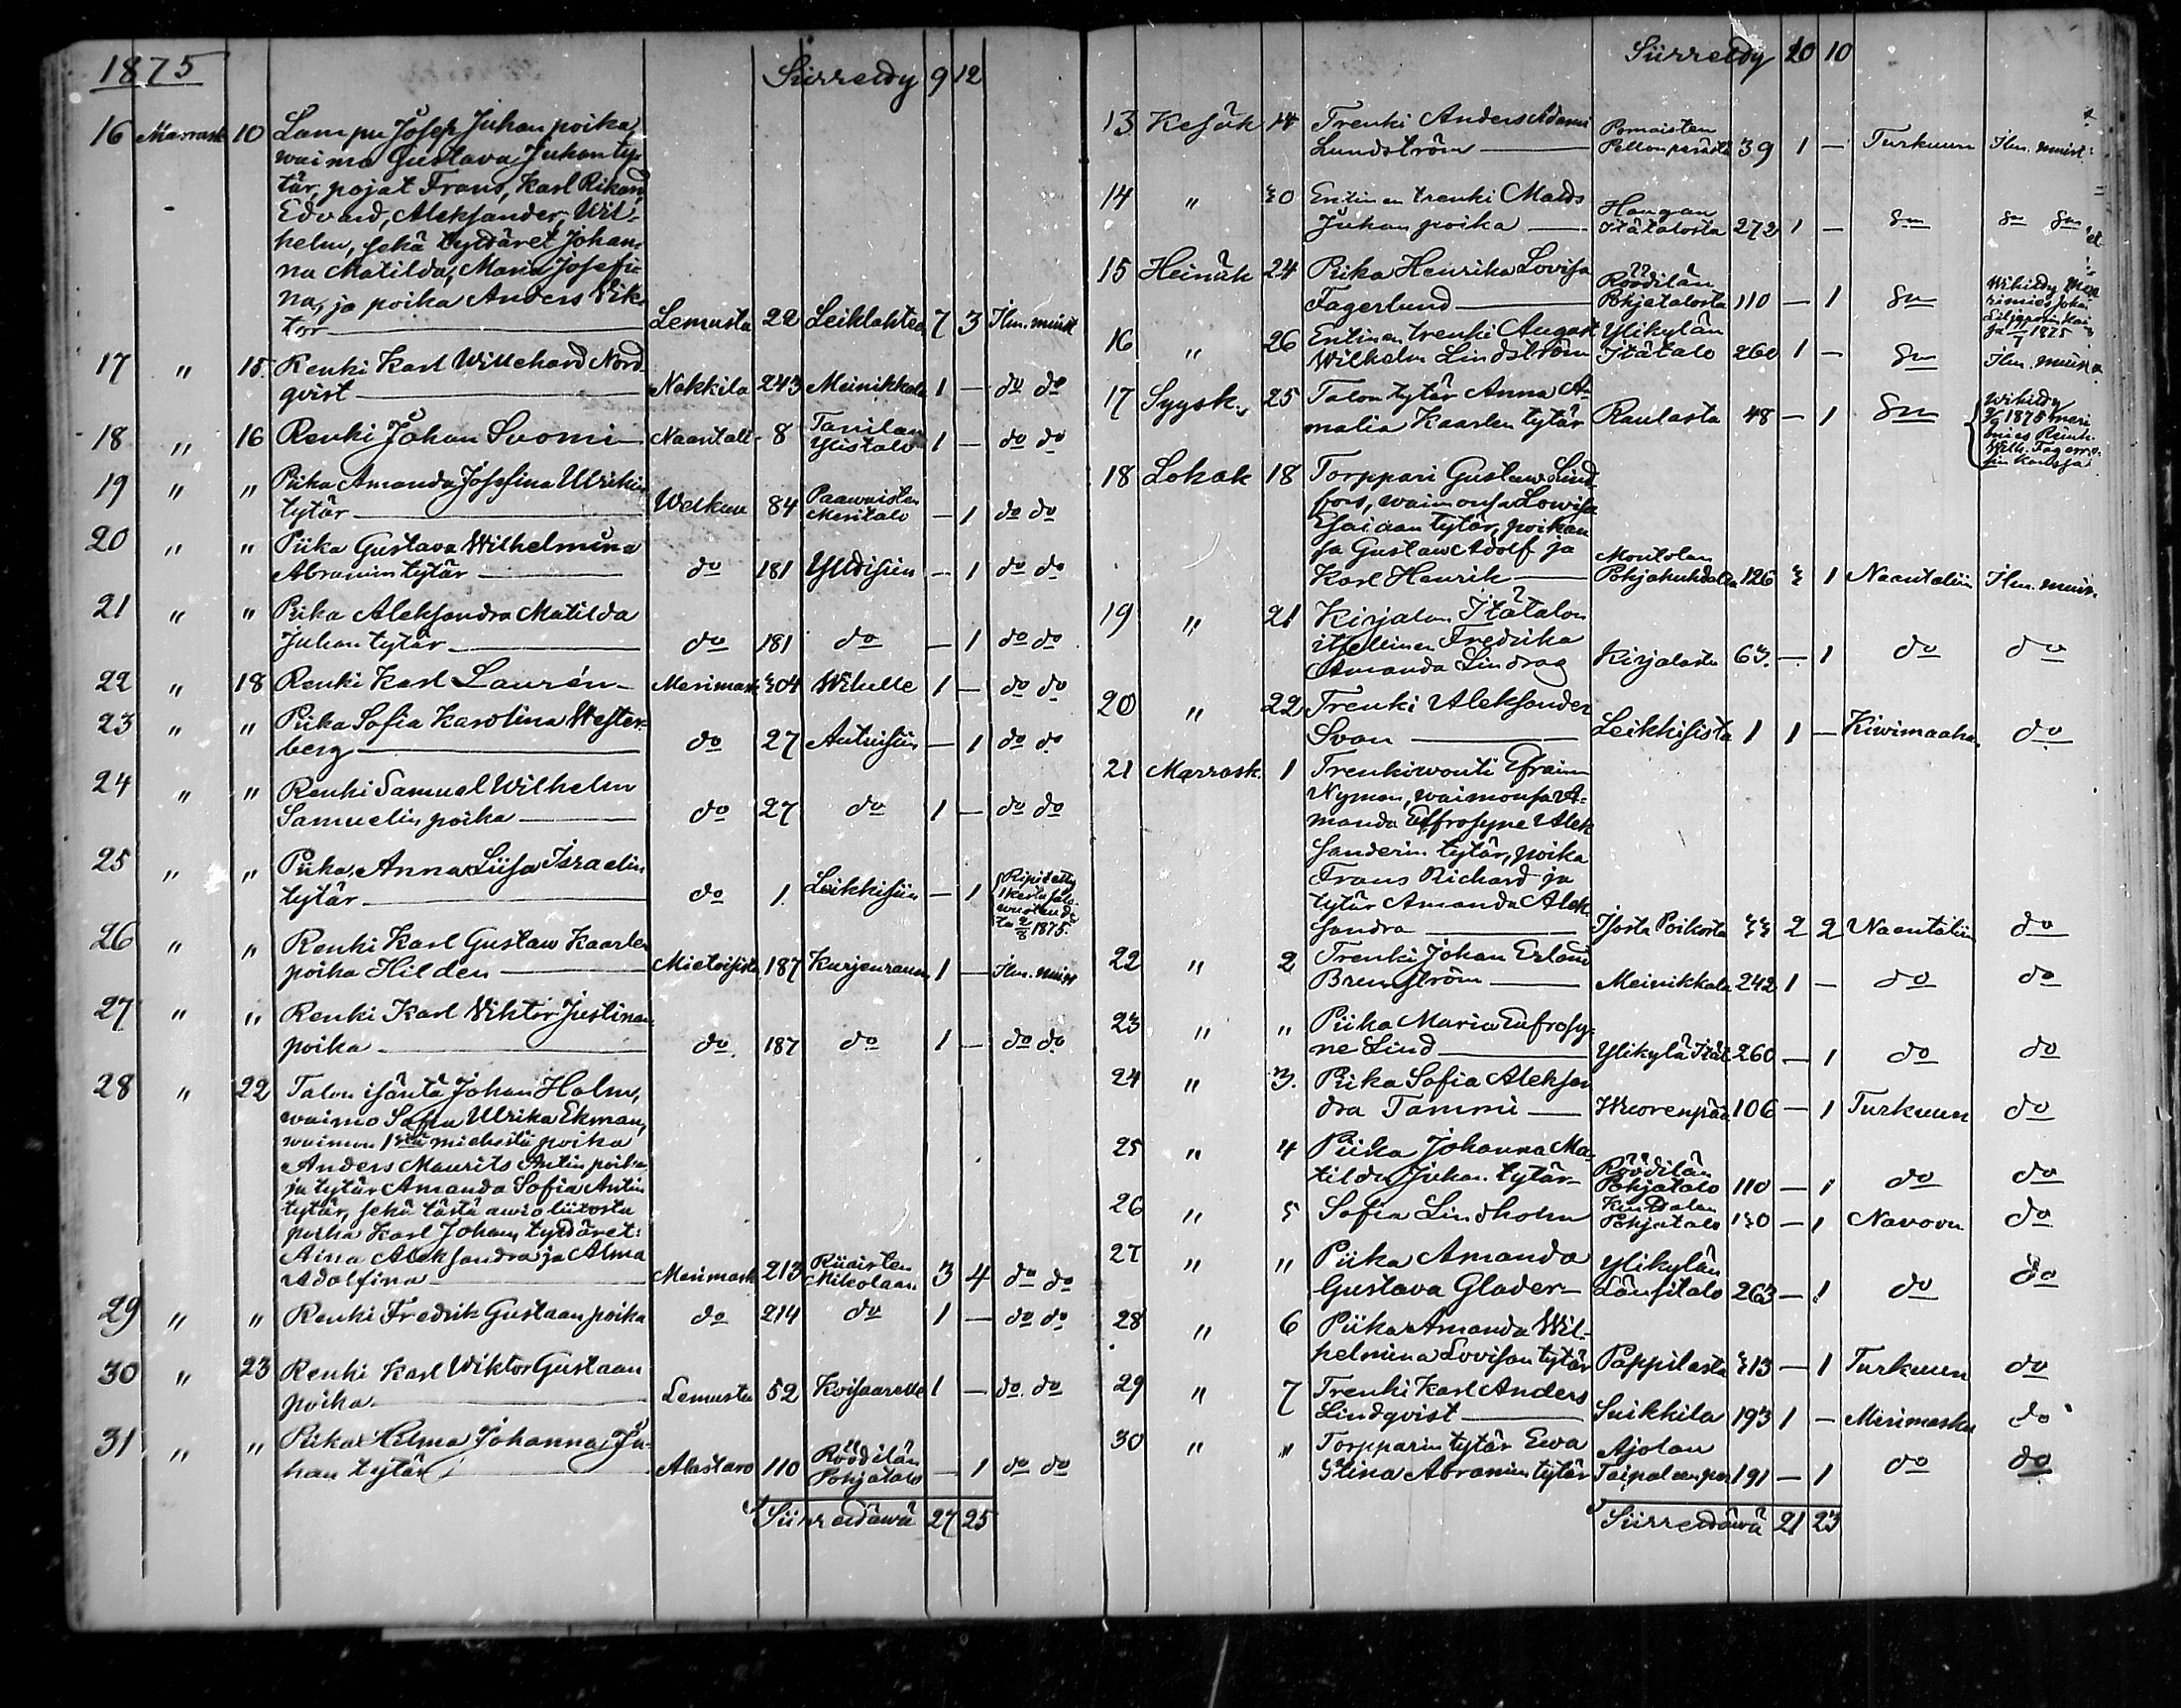 1875
Siirretty 9 12
16 Marrask 10 Lampu Josef Juhan poika,
waimo Gustava Juhan ty-
tär, pojat Frans, Karl Rikard,
Edvard, Aleksander, Wil-
helm, sekä tyttäret Johan-
na Matilda, Maria Josefi-
na, ja poika Anders Vik-
tor Lemusta 22 Leiklahteen 7 3 Ilm. muist
17 " 15. Renki Karl Willehard Nord-
qvist Nakkila 243 Meinikkala 1 — do do
18 " 16 Renki Johan Suomi Naantali 8 Tanilan
Ylistalo 1 — do do
19 " " Piika Amanda Josefina Ulrikin
tytär Welkua 84 Paawaisten
Meritalo — 1 do do
20 " " Piika Gustava Wilhelmina
Abramin tytär do 181 — 1 do do
21 " " Piika Aleksandra Matilda
Juhan tytär do 181 do — 1 do do
22 " 18 Renki Karl Laurén Merimask 304 1 — do do
23 " " Piika Sofia Karolina Wester-
berg do 27 — 1 do do
24 " " Renki Samuel Wilhelm
Samuelin poika do 27 do 1 — do do
25 " " Piika Anna Liisa Israelin
tytär do 1. Leikkisiin — 1
1875.
26 " " Renki Karl Gustaw Kaarlen
poika Hilden Mietoisista 187 Kurjenrauma 1 — Ilm. muist
27 " " Renki Karl Viktor Justinan
poika do 187 do 1 — do do
28 " 22 Talon isäntä Johan Holm,
waimo Sofia Ulrika Ekman,
waimon miehestä poika
Anders Maurits Antin poika
ja tytär Amanda Sofia Antin
tytär, sekä tästä awioliitosta
poika Karl Johan, tyttäret:
Aina Aleksandra ja Alma
Adolfina Merimask 213 Riiaisten
Mikolaan 3 4 do do
29 " " Renki Fredrik Gustaan poika do 214 do 1 — do do
30 " 23 Renki Karl Wiktor Gustaan
poika Lemusta 52 Koisaarelle 1 — do do
31 " " Piika Hilma Johanna Ju-
han tytär Alastaro 110 Röödilän
Pohjatalo — 1 do do
Siirrettäwä 27 25
Siirretty 20 10
13 Kesäk 14 Trenki Anders Adami
Lundström Pomaisten
Pellonperästä 39 1 — Turkuun Ilm. muist:
14 " 30 Entinen trenki Matts
Juhan poika Haugan
Itätalosta 272 1 —
15 Heinäk 24 Piika Henrika Lovisa
Fagerlund Röödilän
Pohjatalosta 110 — 1
1875
16 " 26 Entinen trenki August
Wilhelm Lindström Ylikylän
Itätalo 260 1 — Ilm. muist
17 Syysk. 25 Talon tytär Anna A-
malia Kaarlen tytär Raulasta 48 — 1 Wihitty
1875 meri
mies
18 Lokak 18 Torppari Gustaw Lind-
fors, waimonsa Lowisa
Esaiaan tytär, poikan-
sa Gustaw Adolf ja
Karl Henrik Montolan
126 3 1 Naantaliin Ilm. muis.
19 " 21 Kirjalan Itätalon
itsellinen Fredrika
Amanda Lindrag Kirjalasta 63. — 1 do do
20 " 22 Trenki Aleksander
Svan Leikkisista 1 1 — Kiwimaaha. do
21 Marrask. 1 Trenkiwouti Efraim
Nyman, waimonsa A-
manda Effrosyne Alek
sanderin tytär, poika
Frans Richard ja
tytär Amanda Alek
sandra Isosta Poikosta 33 2 2 Naantaliin do
22 " 2 Trenki Johan Erland
Brunström Meinikkala 242 1 — do do
23 " " Piika Maria Eufrosy-
ne Lind Ylikylä Ität 260 — 1 do do
24 " 3. Piika Sofia Aleksan
dra Tammi Wuorenpää 106 — 1 Turkuun do
25 " 4 Piika Johanna Ma-
tilda Juhan tytär Röödilän
Pohjatalo 110 — 1 do do
26 " 5 Sofia Lindholm
Pohjatalo 130 — 1 Navoon do
27 " " Piika Amanda
Gustava Glader Ylikylän
Länsitalo 263 — 1 do do
28 " 6 Piika Amanda Wil-
helmina Lovisan tytär Pappilasta 313 — 1 Turkuun do
29 " 7 Trenki Karl Anders
Lindqvist Suikkila 193 1 — Merimasku do
30 " " Torpparin tytär Ewa
Stina Abramin tytär Ajolan
191 — 1 do do
Siirrettäwä 21 23